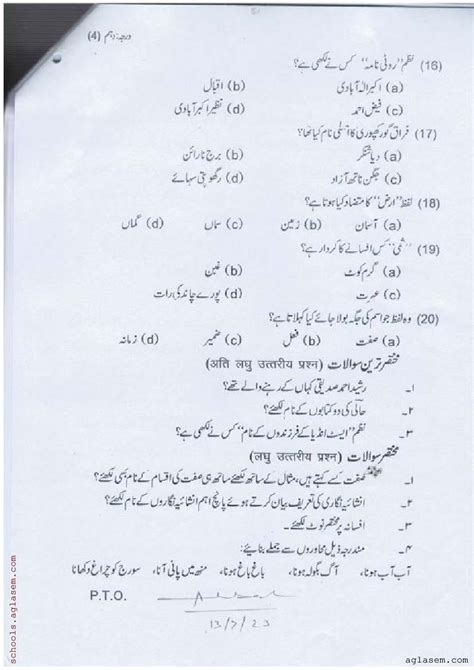 درجہ: دہم (4)
(16) نظم "روٹی نامہ" کس نے لکھی ہے؟
(a) اکبر الہ آبادی (b) اقبال
(c) فیض احمد (d) نظیر اکبر آبادی
(17) فراق گورکھپوری کا اصلی نام کیا تھا؟
(a) دیا شنکر (b) برج نارائن
(c) جگن ناتھ آزاد (d) رگھوپتی سہائے
(18) لفظ "ارض" کا متضاد کیا ہوتا ہے؟
(a) آسمان (b) زمین (c) سماں (d) گماں
(19) "شمی" کس افسانے کا کردار ہے؟
(a) گرم کوٹ (b) غبن
(c) عبرت (d) پورے چاند کی رات
(20) وہ لفظ جو اسم کی جگہ بولا جائے کیا کہلاتا ہے؟
(a) صفت (b) فعل (c) ضمیر (d) زمانہ
مختصر ترین سوالات (अति लघु उत्तरीय प्रश्न)
۱۔ رشید احمد صدیقی کہاں کے رہنے والے تھے؟
۲۔ حالی کی دو کتابوں کے نام لکھئے؟
۳۔ نظم "ایسٹ انڈیا کے فرزندوں کے نام" کس نے لکھی ہے؟
مختصر سوالات (लघु उत्तरीय प्रश्न)
۱۔ صفت کسے کہتے ہیں، مثال کے ساتھ لکھئے ساتھ ہی صفت کی اقسام کے نام بھی لکھئے؟
۲۔ انشائیہ نگاری کی تعریف بیان کرتے ہوئے پانچ اہم انشائیہ نگاروں کے نام لکھئے؟
۳۔ افسانہ پر مختصر نوٹ لکھئے؟
۴۔ مندرجہ ذیل محاوروں سے جملے بنائیے:
آب آب ہونا، آگ بگولہ ہونا، باغ باغ ہونا، منھ میں پانی آنا، سورج کو چراغ دکھانا
P.T.O.
13/7/23
schools.aglasem.com
aglasem.com